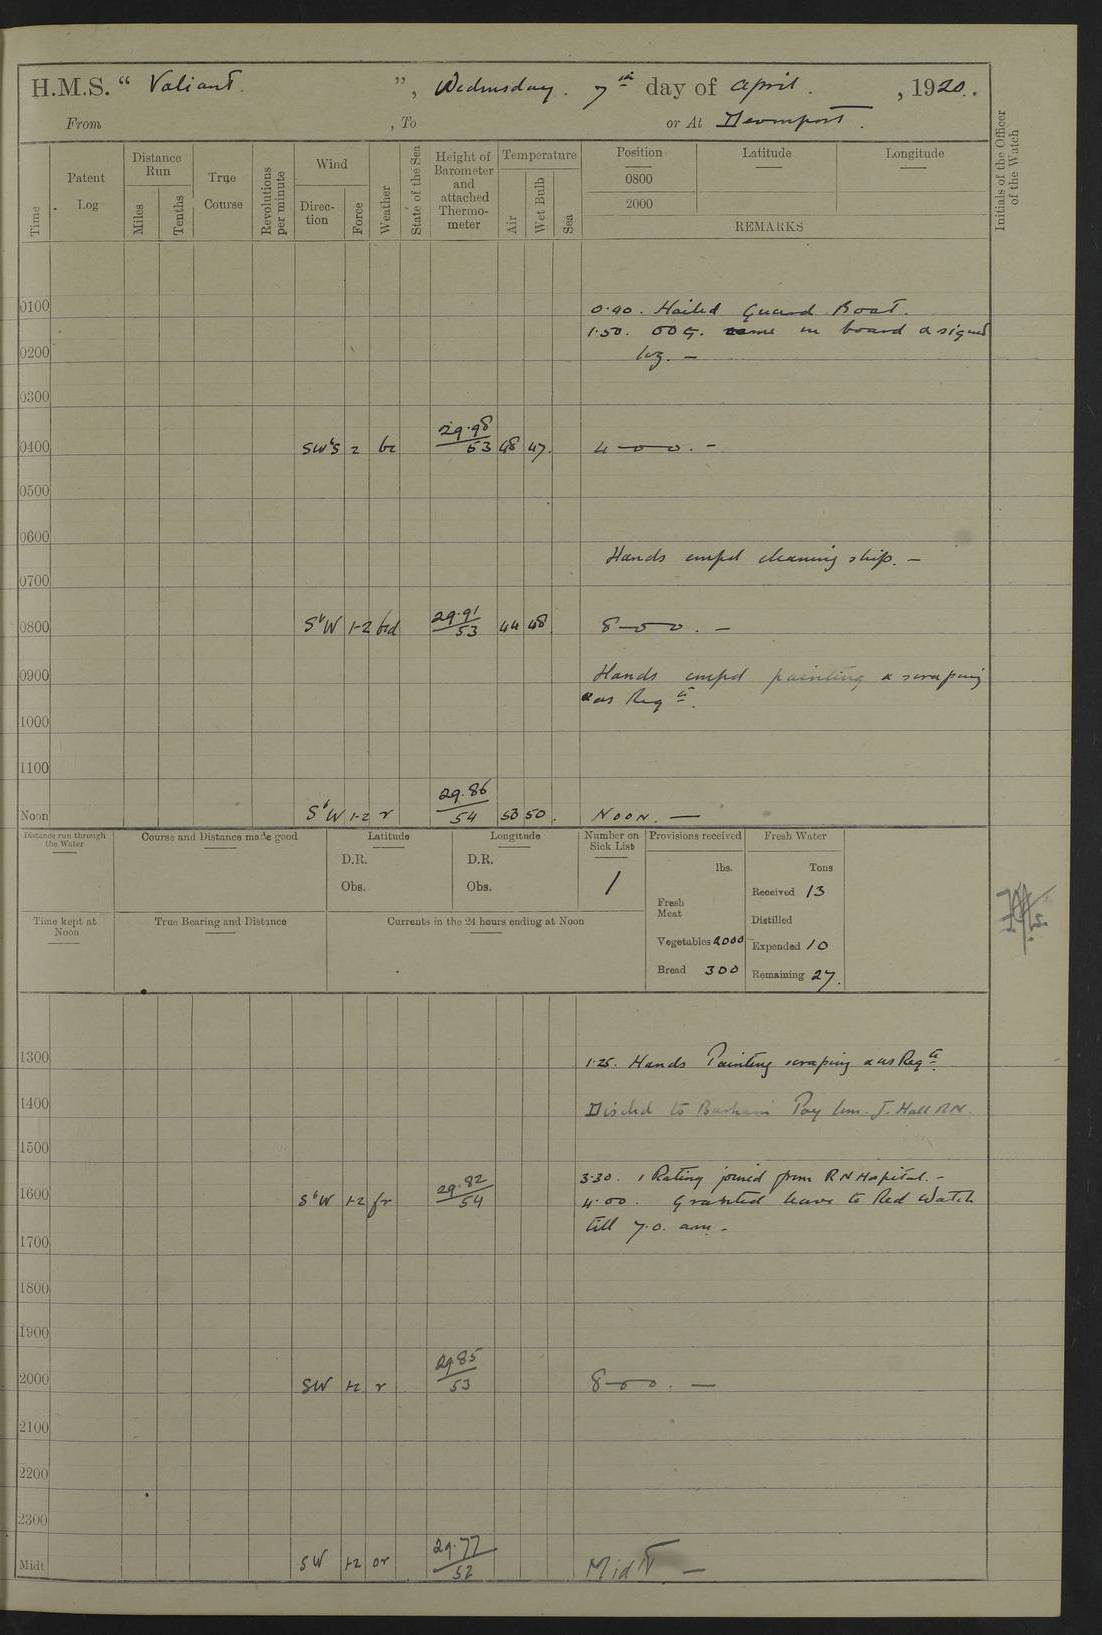 H.M.S. “ Valiant. ”, Wednesday. 7th day of April. , 1920.
From , To or At Devonport.
Time
Patent Log
Distance Run
Miles
Tenths
True Course
Revolutions per minute
Wind
Direc-tion
Force
Weather
State of the Sea
Height of Barometer and attached Thermo-meter
Temperature
Air
Wet Bulb
Sea
Position
0800
2000
Latitude
Longitude
REMARKS
Initials of the Officer of the Watch
0100 0.40. Hailed Guard Boat.
1.50. OOG. came on board & signed
0200 log. —
0300
0400 SW'S 2 bc 29.98/53 48 47. 4—00. —
0500
0600
Hands empd cleaning ship. —
0700
0800 S'W 1-2 bcd 29.91/53 44 48 8—00. —
0900 Hands empd painting & scraping
& as Reqte.
1000
1100
Noon S'W 1-2 r 29.86/54 53 50. NOON. —
Distance run through the Water
Course and Distance made good
Latitude
Longitude
Number on Sick List
Provisions received
Fresh Water
D.R. D.R. lbs. Tons
Obs. Obs. 1 Received 13
Fresh Meat
Distilled
Time kept at Noon
True Bearing and Distance
Currents in the 24 hours ending at Noon
Vegetables 2000 Expended 10
Bread 300 Remaining 27.
1300 1.25. Hands Painting scraping & as Reqte.
1400 Disched to Barham Pay Com. J. Hall RN.
1500
3.30. 1 Rating joined from RN Hospital. -
1600 S'W 1-2 fr 29.82/54 4.00. Granted leave to Red Watch
till 7.0. am. -
1700
1800
1900
2000 SW 1-2 r 29.85/53 8—00. —
2100
2200
2300
Midt SW 1-2 or 29.77/52 MidNt —